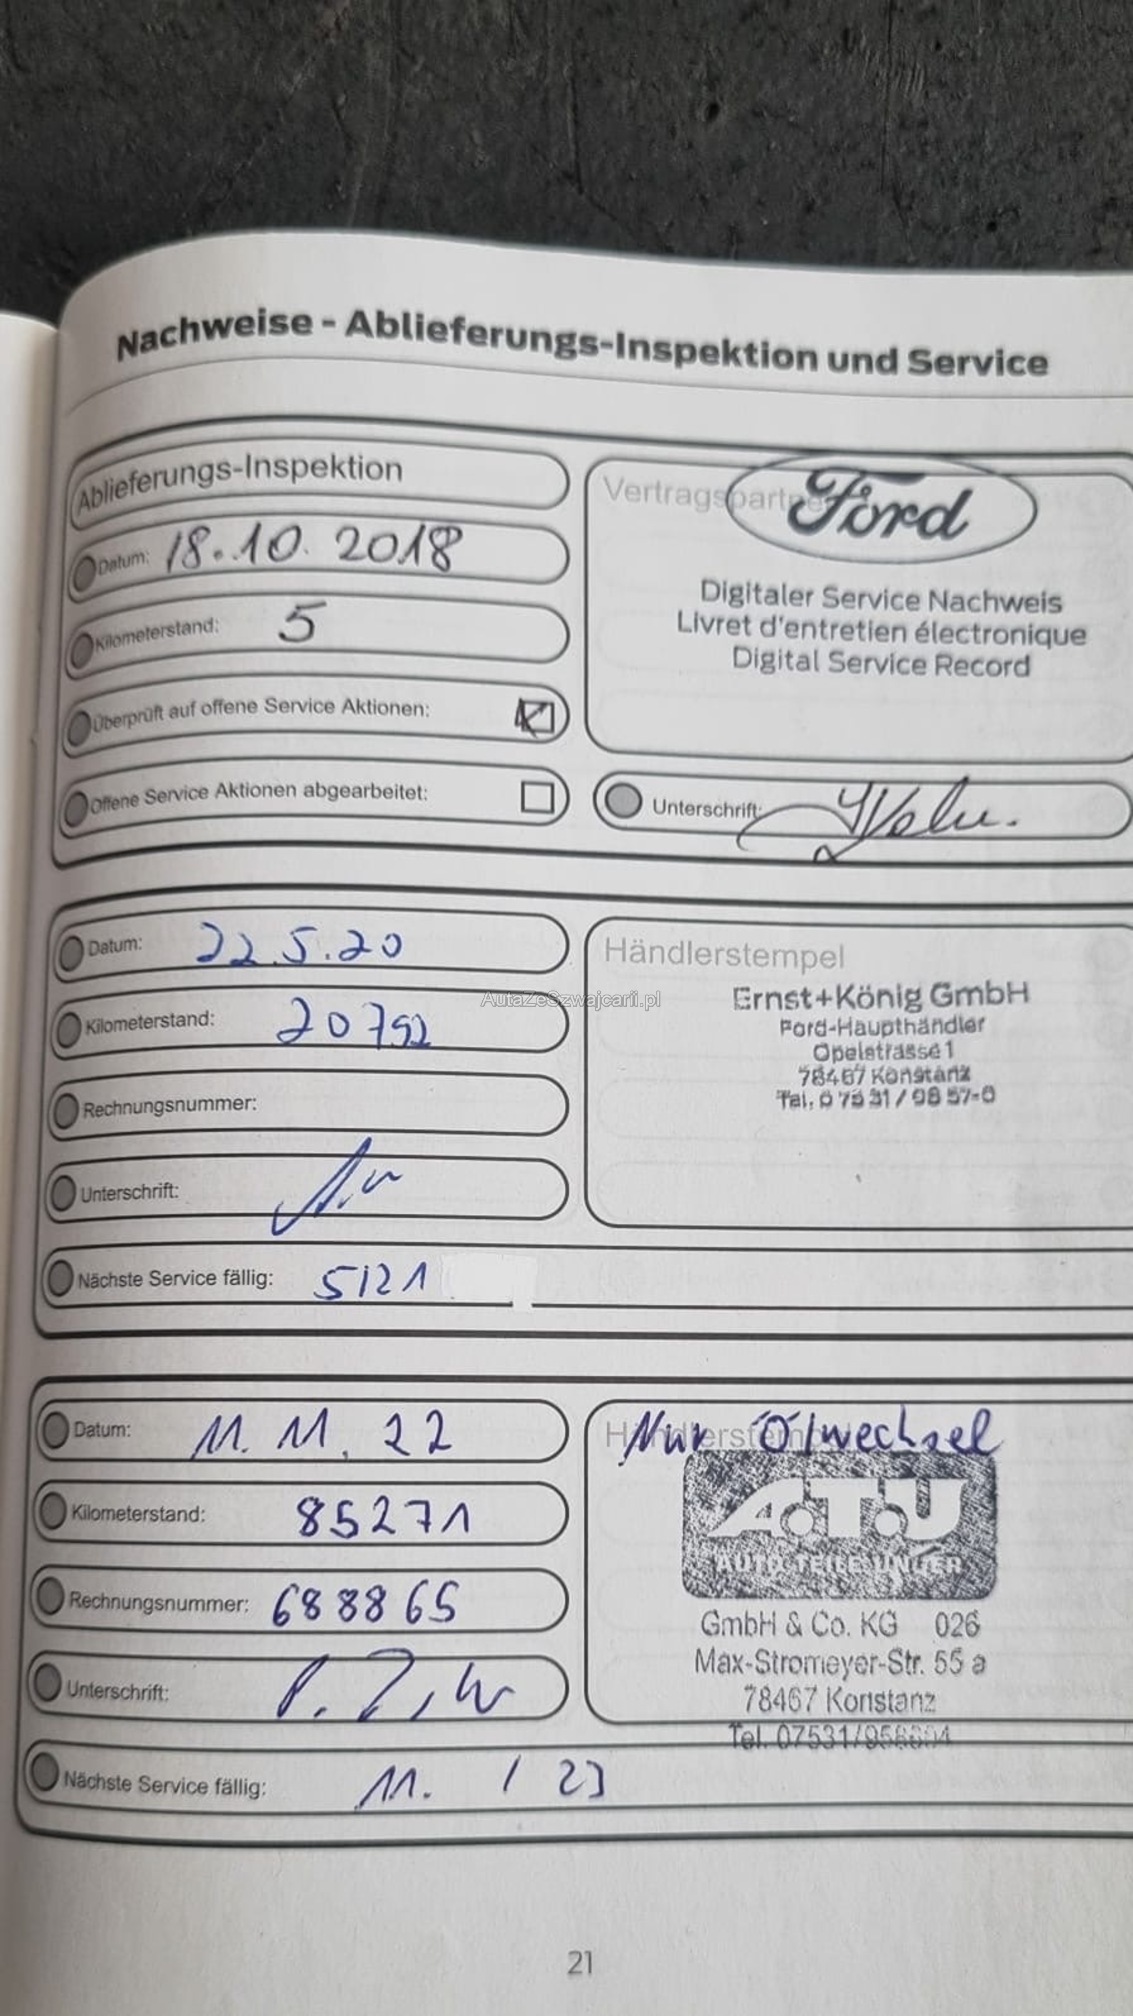 Nachweise - Ablieferungs-Inspektion und Service
Ablieferungs-Inspektion
Datum: 18.10.2018
Kilometerstand: 5
Überprüft auf offene Service Aktionen:
Offene Service Aktionen abgearbeitet:
Vertragspartner
Ford
Digitaler Service Nachweis
Livret d'entretien électronique
Digital Service Record
Unterschrift:
Datum: 22.5.20
Kilometerstand: 20792
Rechnungsnummer:
Unterschrift:
Nächste Service fällig: 5121
Händlerstempel
Ernst+König GmbH
Ford-Haupthändler
Opelstrasse 1
78467 Konstanz
Tel. 0 75 31 / 98 57-0
AutaZeSzwajcarii.pl
Datum: 11. 11. 22
Kilometerstand: 85271
Rechnungsnummer: 688865
Unterschrift:
Nächste Service fällig: 11. / 23
Händlerstempel
Nur Ölwechsel
A.T.U
AUTO-TEILE-UNGER
GmbH & Co. KG 026
Max-Stromeyer-Str. 55 a
78467 Konstanz
Tel. 07531/
21